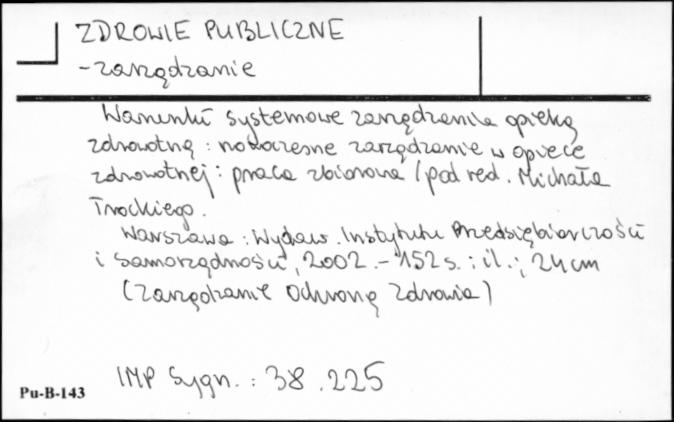 ZDROWIE PUBLICZNE
- zarządzanie
Warunki systemowe zarządzania opieką
zdrowotną : nowoczesne zarządzanie w opiece
zdrowotnej : praca zbiorowa / pod red. Michała
Trockiego.
Warszawa : Wydaw. Instytutu Przedsiębiorczości
i Samorządności, 2002. - 152 s. : il. ; 24 cm
(Zarządzanie Ochroną Zdrowia)
IMP Sygn. : 38.225
Pu-B-143